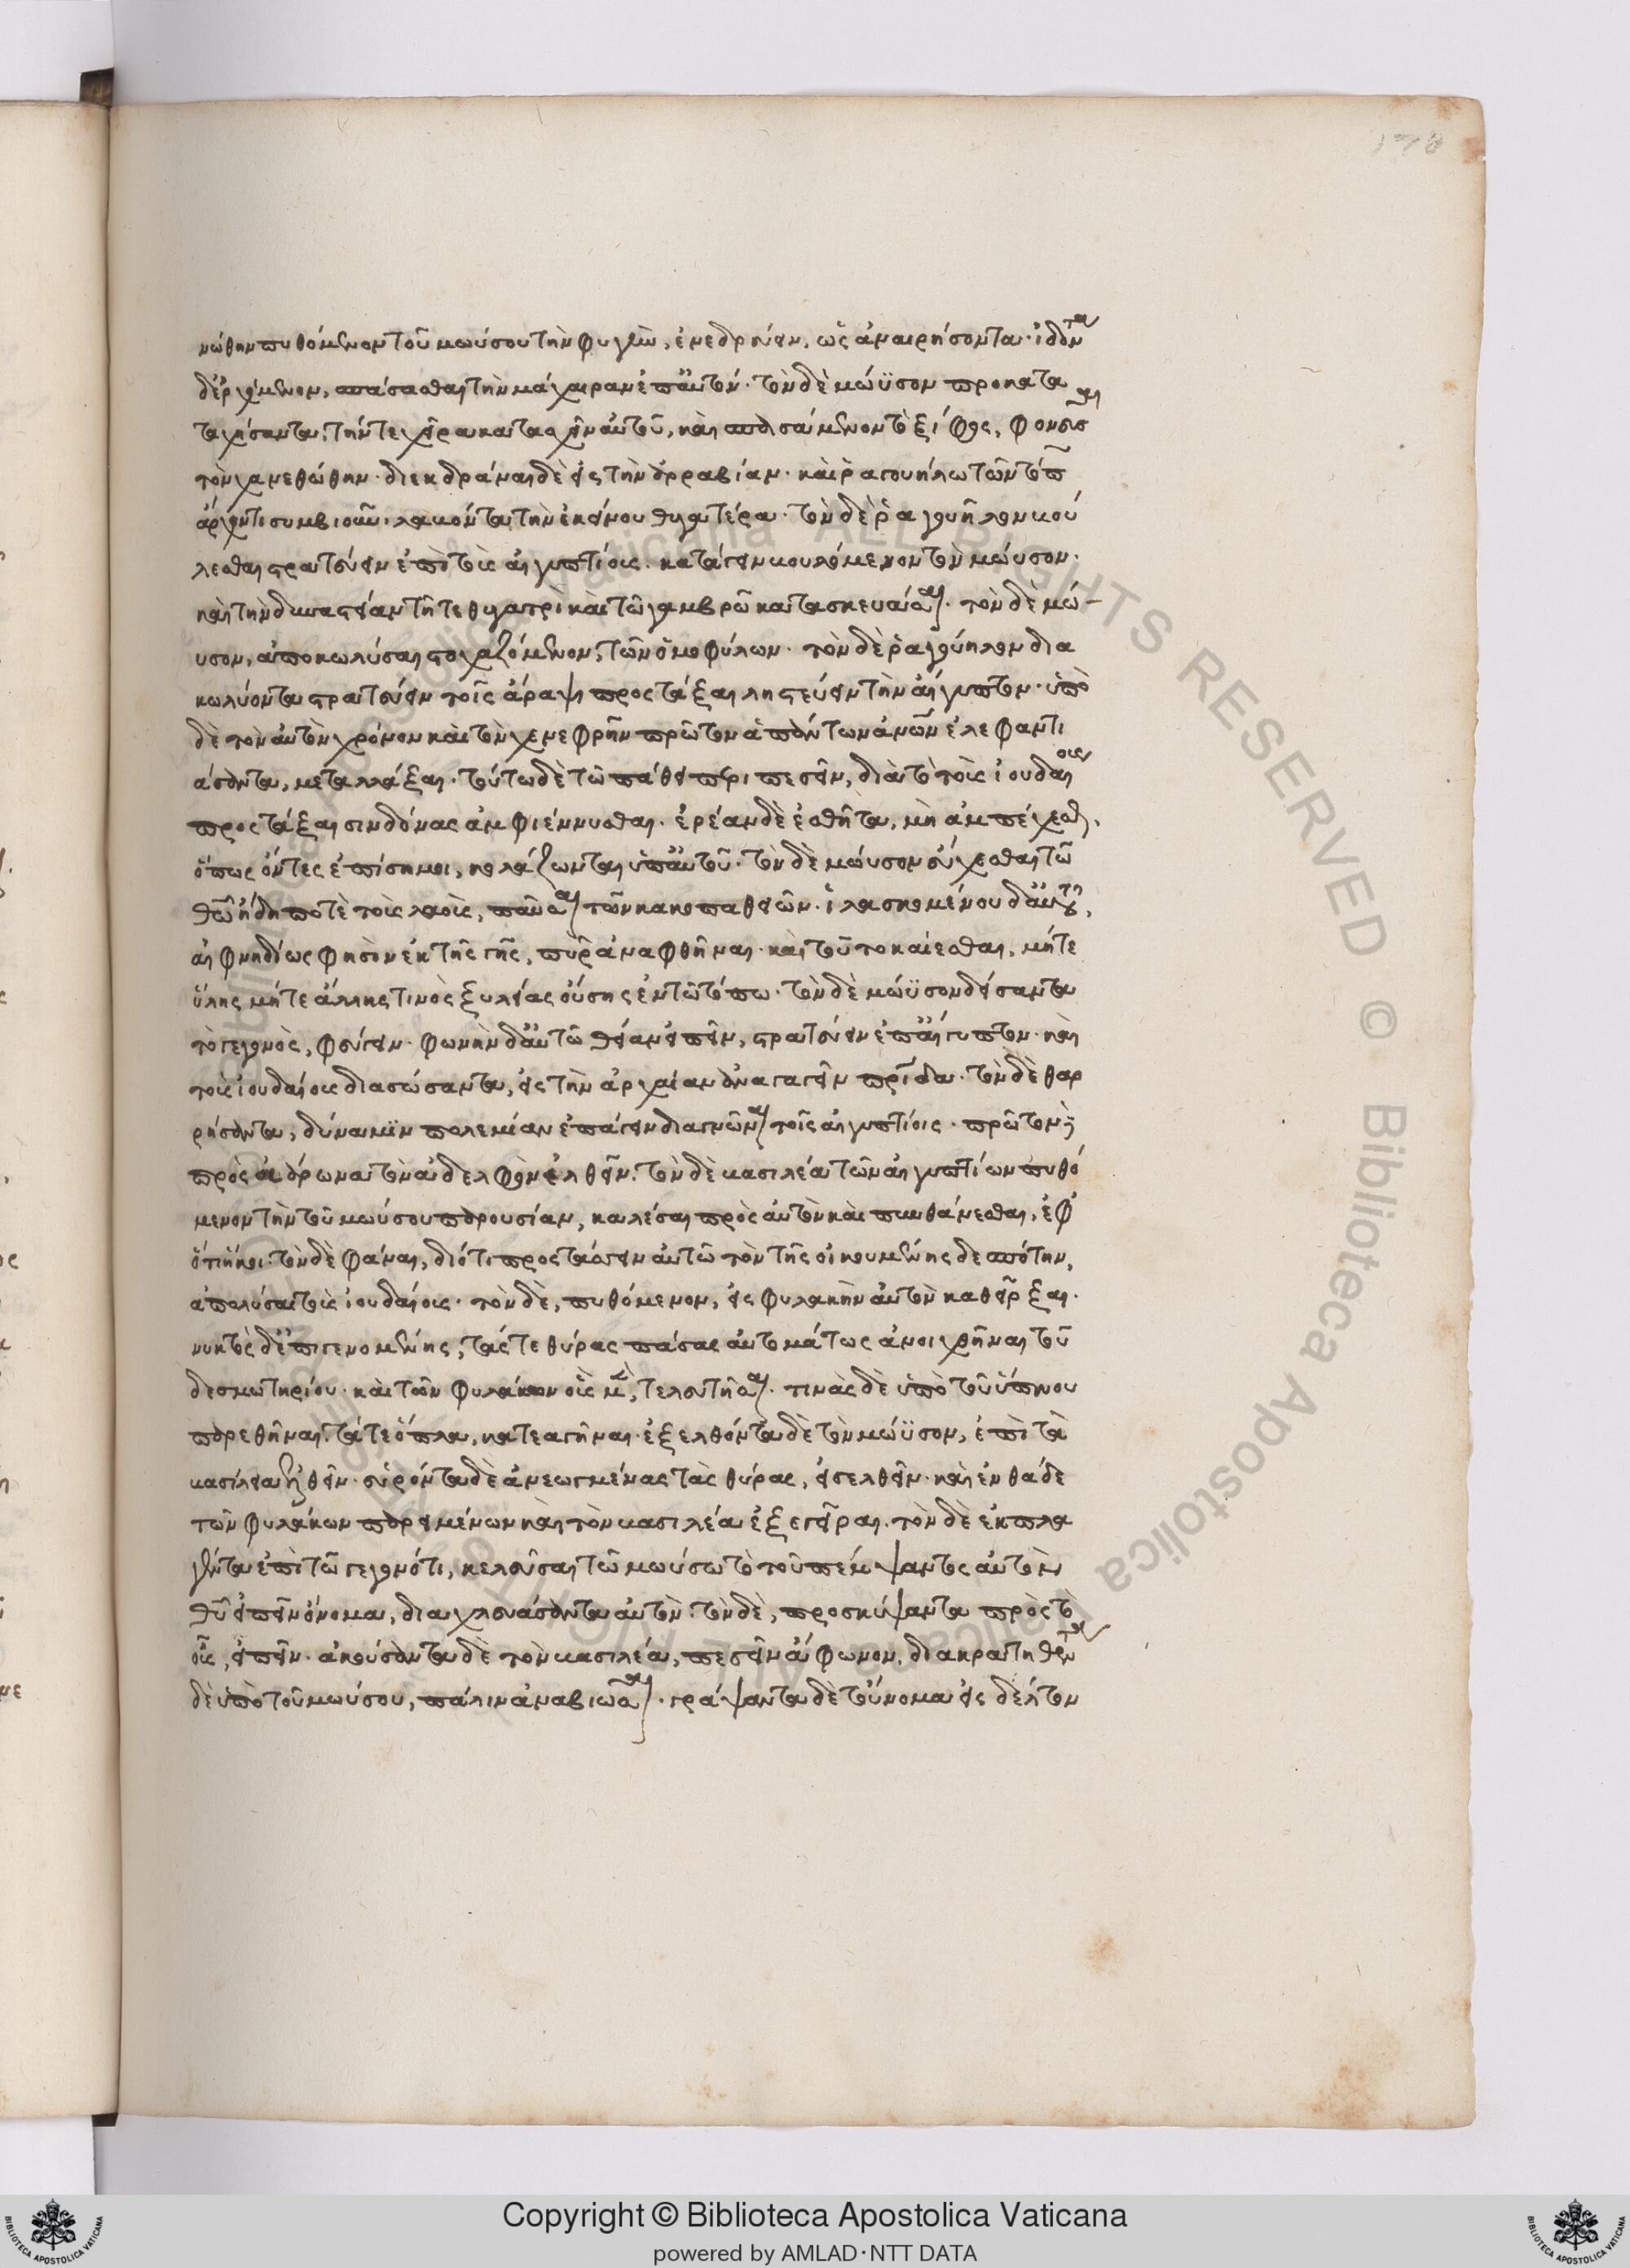 νώθην πυθόμενον τοῦ μωύσου τὴν φυγὴν, ἐνεδρεύειν, ὡς ἀναιρήσοντα· ἰδόντα
δὲ ἐρχόμενον, σπάσασθαι τὴν μάχαιραν ἐπ' αὐτόν· τὸν δὲ μώϋσον προκατα
ταχήσαντα, τήν τε χεῖρα κατασχεῖν αὐτοῦ, καὶ σπασάμενον τὸ ξίφος, φονεῦσαι
τὸν χανεθώθην· διεκδρᾶναι δὲ εἰς τὴν ἀρραβίαν· καὶ ῥαγουήλω τῶν τόπων
ἄρχοντι συμβιοῦν· λαβόντα τὴν ἐκείνου θυγατέρα· τὸν δὲ ῥαγουῆλον βού
λεσθαι στρατεύειν ἐπὶ τοῖς αἰγυπτίοις· κατάγειν βουλόμενον τὸν μώυσον·
καὶ τὴν δυναστείαν τῇ τε θυγατρὶ καὶ τῶ γαμβρῶ κατασκευάσαι· τὸν δὲ μώ-
υσον, ἀποκωλῦσαι στοχαζόμενον, τῶν ὁμοφύλων· τὸν δὲ ῥαγούηλον δια
κωλύοντα στρατεύειν τοῖς ἄραψι προστάξαι ληστεύειν τὴν αἴγυπτον· ὑπὸ
δὲ τὸν αὐτὸν χρόνον καὶ τὸν χενεφρῆν πρῶτον ἁπάντων ἀνθρώπων ἐλεφαντι
άσαντα, μεταλλάξαι· τούτω δὲ τῶ πάθει περιπεσεῖν, διὰ τὸ τοὺς ἰουδαίους
προστάξαι σινδόνας ἀμφιέννυσθαι· ἐρεᾶν δὲ ἐσθῆτα, μὴ ἀμπέχεσθαι·
ὅπως ὄντες ἐπίσημοι, κολάζωνται ὑπ' αὐτοῦ· τὸν δὲ μώυσον εὔχεσθαι τῶ
θεῶ ἤδη ποτὲ τοὺς λαοὺς, παῦσαι τῶν κακοπαθειῶν· ἱλασκομένου δ' αὐτοῦ,
αἰφνιδίως φησὶν ἐκ τῆς γῆς, πῦρ ἀναφθῆναι· καὶ τοῦτο καίεσθαι, μήτε
ὕλης μήτε ἄλλης τινὸς ξυλείας οὔσης ἐν τῶ τόπω· τὸν δὲ μώϋσον δείσαντα
τὸ γεγονὸς, φεύγειν· φωνὴν δ' αὐτῶ θείαν εἰπεῖν, στρατεύειν ἐπ' αἴγυπτον· καὶ
τοὺς ἰουδαίους διασώσαντα, εἰς τὴν ἀρχαίαν ἀναγαγεῖν πατρίδα· τὸν δὲ θαρ
ρήσαντα, δύναμϊν πολεμίαν ἐπάγειν διαγνῶναι τοῖς αἰγυπτίοις· πρῶτον δὲ
πρὸς ἀάρωνα τὸν ἀδελφὸν ἐλθεῖν· τὸν δὲ βασιλέα τῶν αἰγυπτίων πυθό
μενον τὴν τοῦ μωύσου παρουσίαν, καλέσαι πρὸς αὐτὸν καὶ πυνθάνεσθαι, ἐφ'
ὅτι ἥκοι· τὸν δὲ φάναι, διότι προστάσσειν αὐτῶ τὸν τῆς οἰκουμένης δεσπότην,
ἀπολῦσαι τοὺς ἰουδαίους· τὸν δὲ, πυθόμενον, εἰς φυλακὴν αὐτὸν καθεῖρξαι·
νυκτὸς δὲ ἐπιγενομένης, τάς τε θύρας πάσας αὐτομάτως ἀνοιχθῆναι τοῦ
δεσμωτηρίου· καὶ τῶν φυλάκων οὓς μὲν, τελευτῆσαι· τινὰς δὲ ὑπὸ τοῦ ὕπνου
παρεθῆναι· τά τε ὅπλα, κατεαγῆναι· ἐξελθόντα δὲ τὸν μώϋσον, ἐπὶ τὰ
βασίλεια ἐλθεῖν· εὑρόντα δὲ ἀνεωγμένας τὰς θύρας, εἰσελθεῖν· καὶ ἐνθάδε
τῶν φυλάκων παρειμένων καὶ τὸν βασιλέα ἐξεγεῖραι· τὸν δὲ ἐκπλα
γέντα ἐπὶ τῶ γεγονότι, κελεῦσαι τῶ μωύσω τὸ τοῦ πέμψαντος αὐτὸν
θεοῦ εἰπεῖν ὄνομα, διαχλευάσαντα αὐτὸν· τὸν δὲ, προσκύψαντα πρὸς τὸ
οὖς, εἰπεῖν· ἀκούσαντα δὲ τὸν βασιλέα, πεσεῖν ἄφωνον, διακρατηθέντα
δὲ ὑπὸ τοῦ μωύσου, πάλιν ἀναβιῶσαι· γράψαντα δὲ τοὔνομα εἰς δέλτον